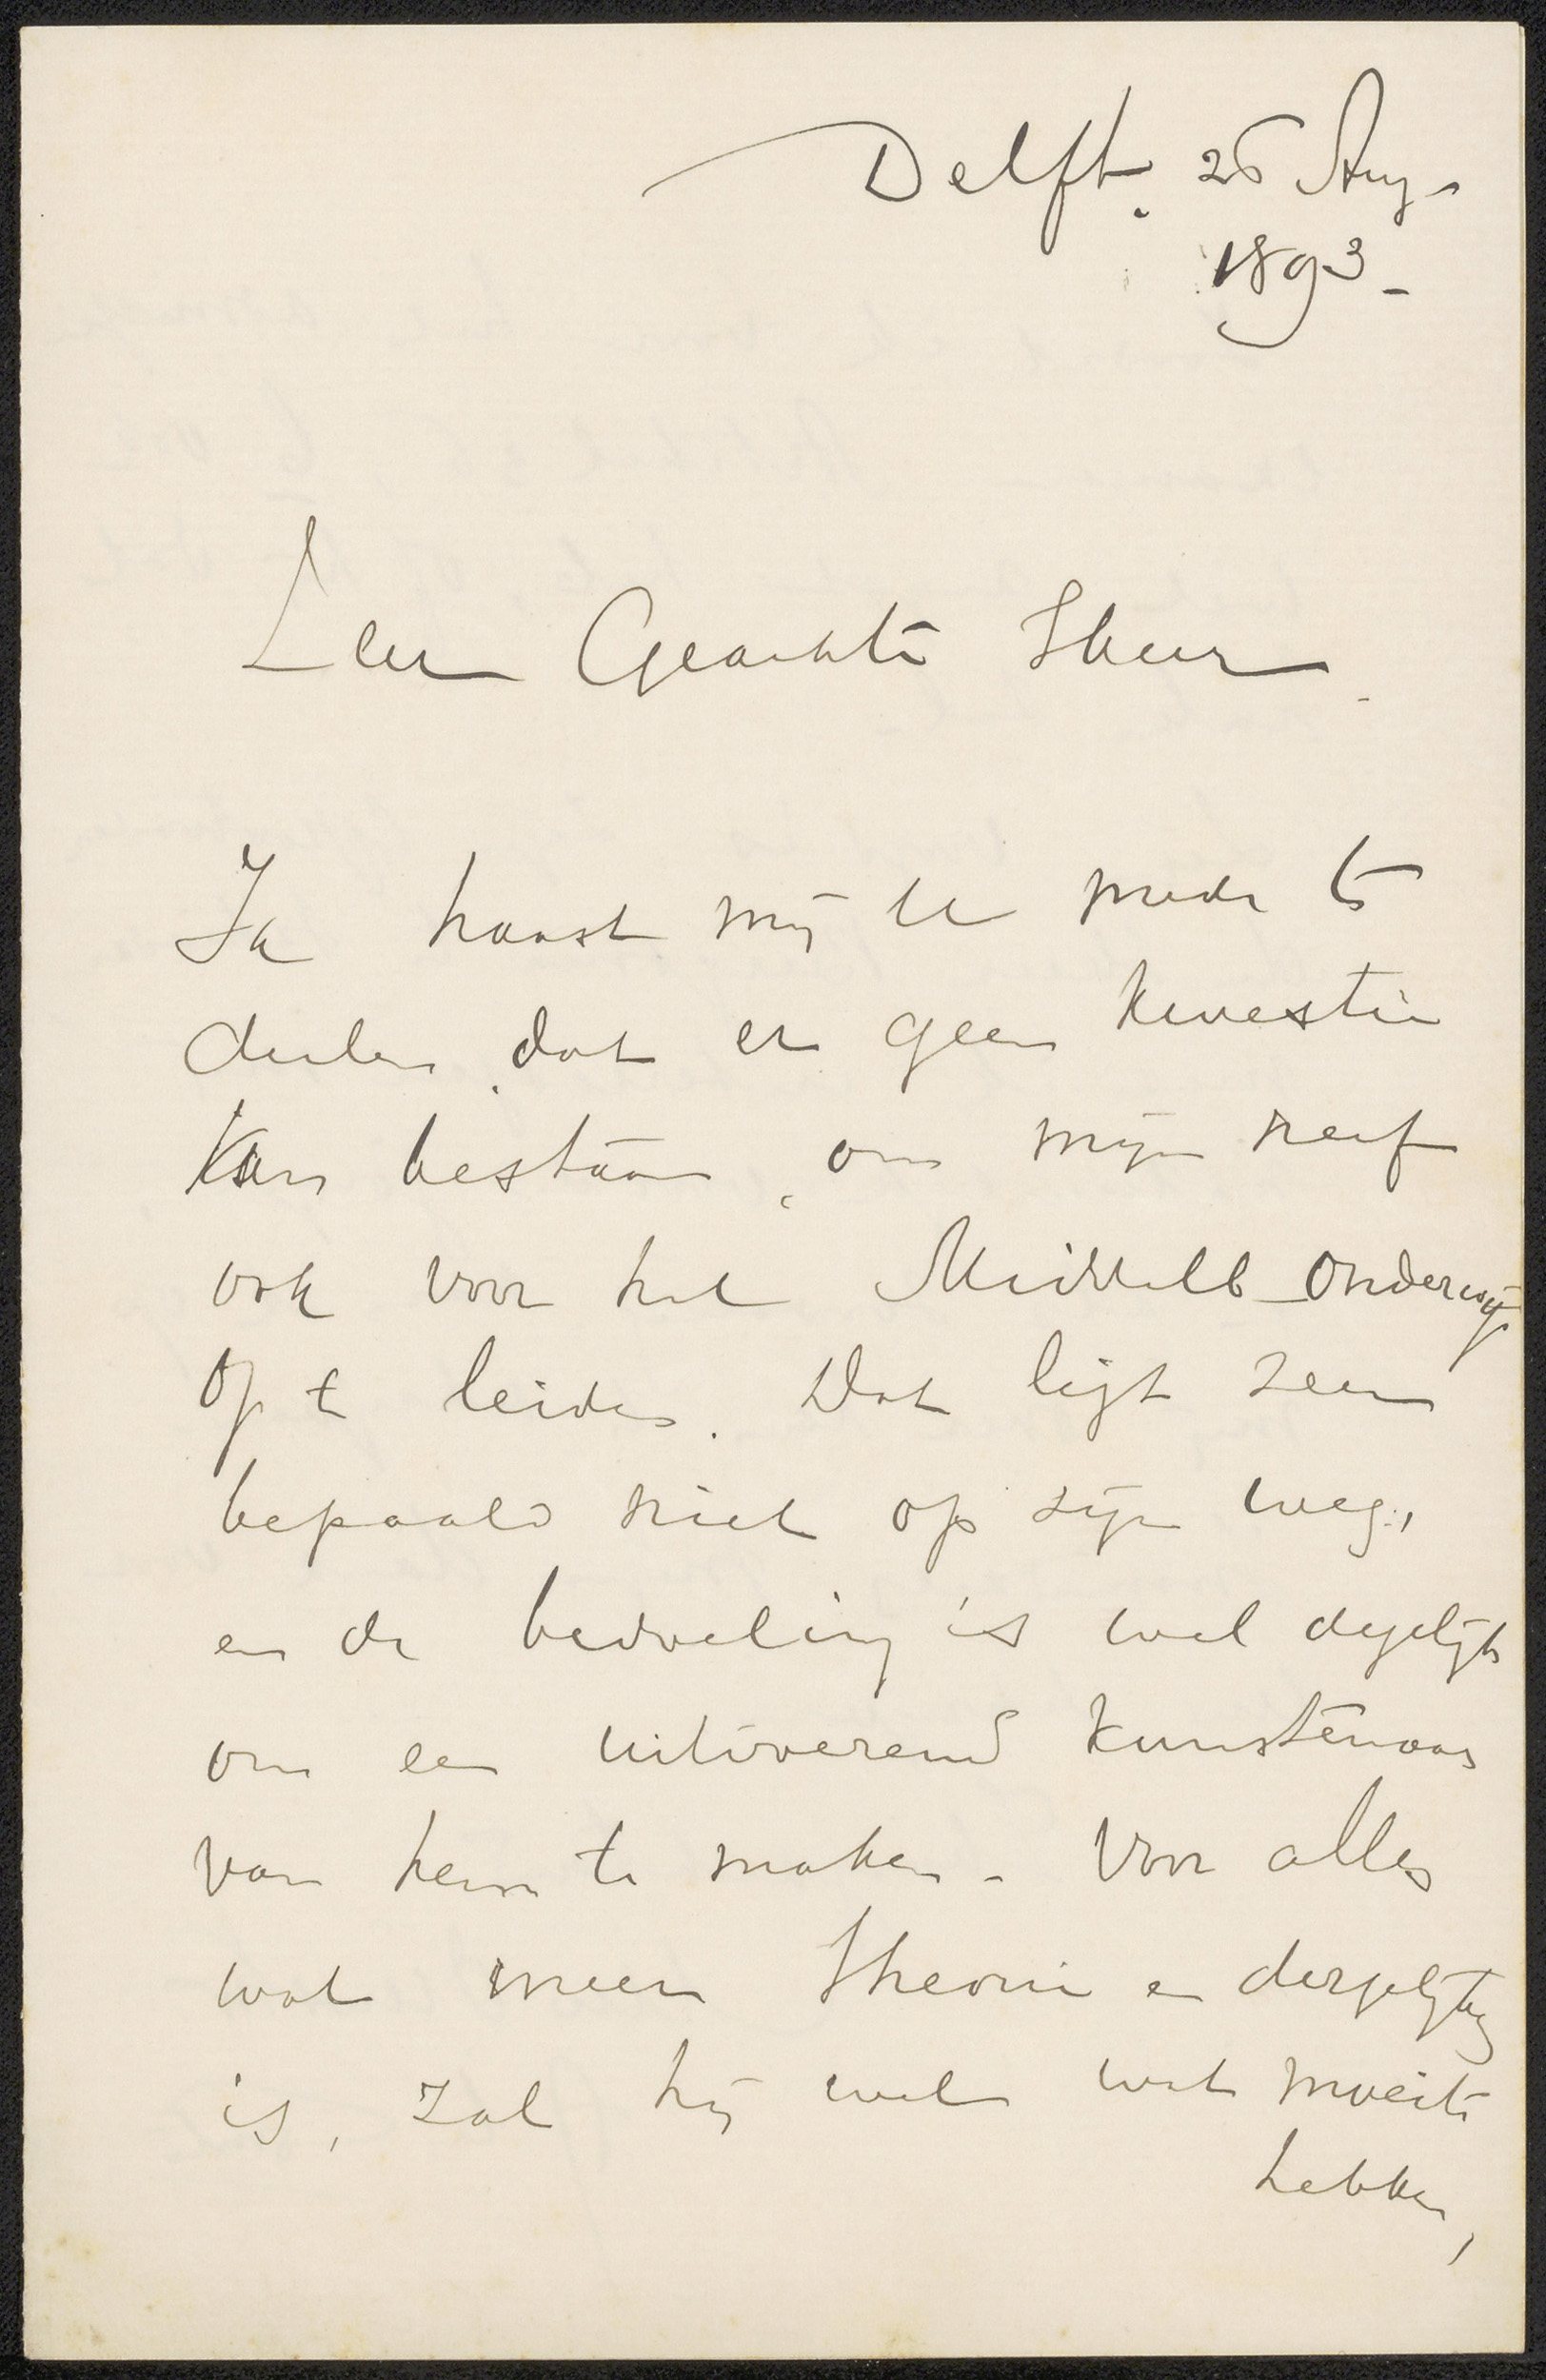 Delft, 26 Aug.
1893.
Zeer Geachte Heer.
Ik haast mij U mede te
deelen, dat er geen kwestie
kan bestaan, om mijn neef
ook voor het Middelb. Onderwijs
op te leiden. Dat ligt zeer
bepaald niet op zijn weg,
en de bedoeling is wel degelijk
om een uitvoerend kunstenaar
van hem te maken. Voor alles
wat meer theorie en dergelijke
is, zal hij wel wat moeite
hebben,